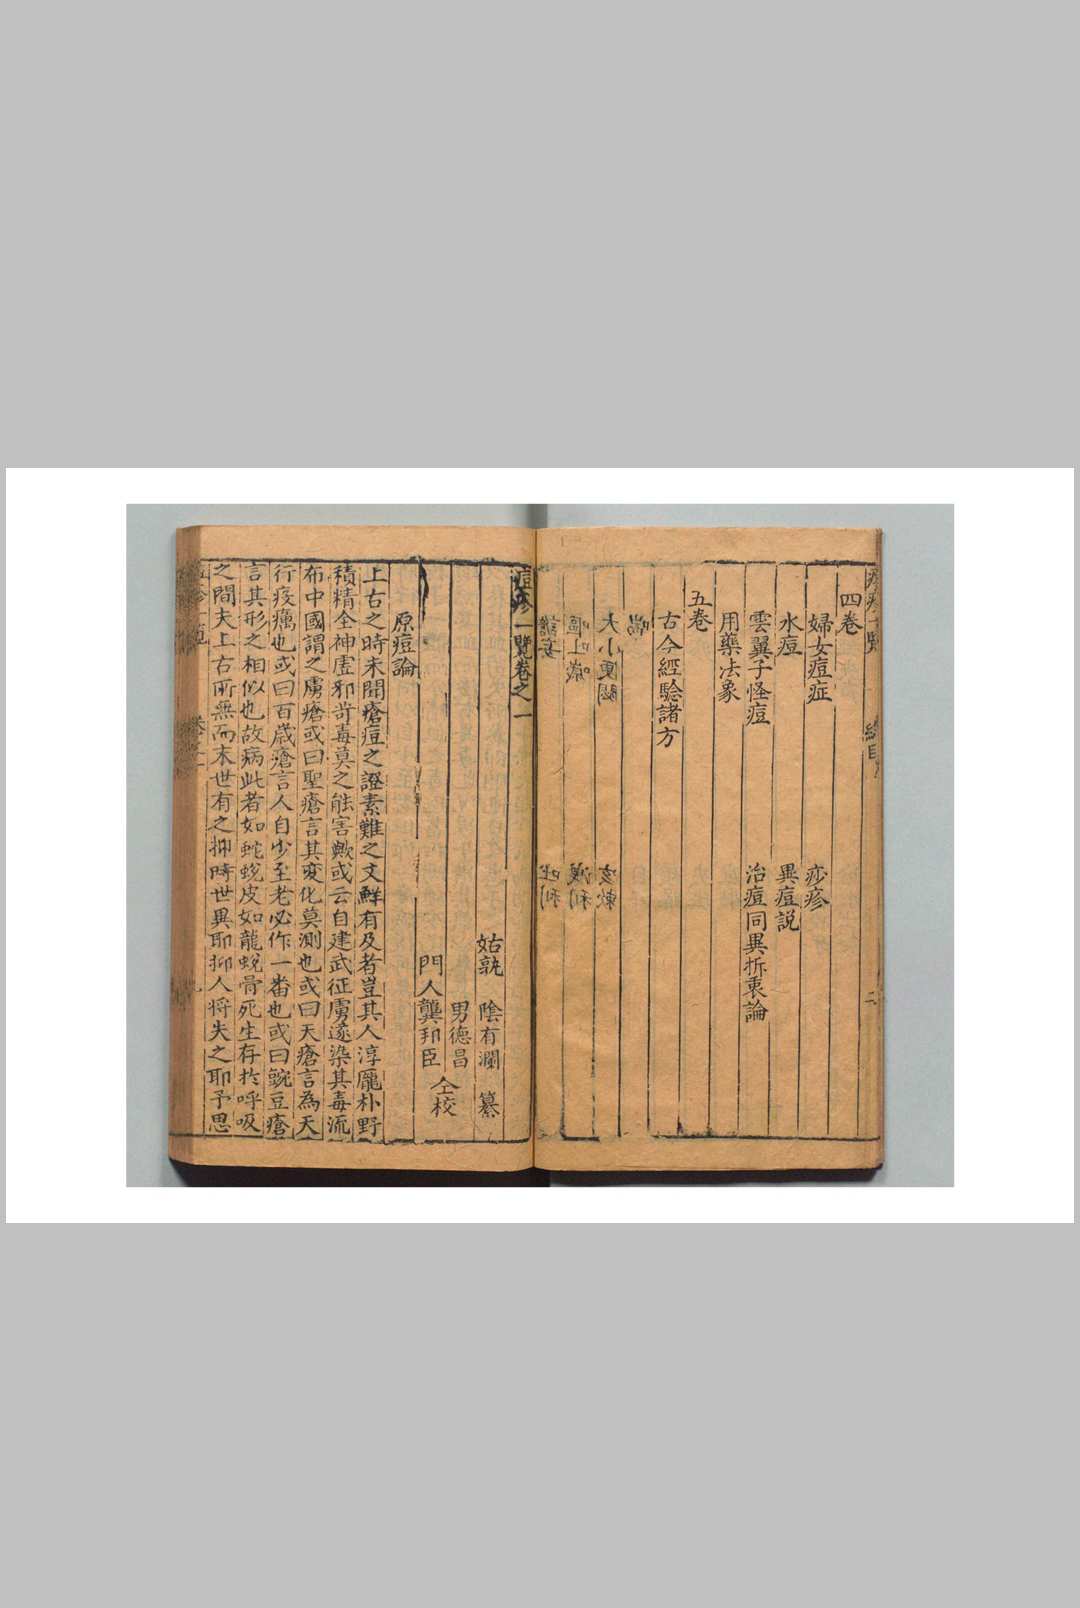 四卷
婦女痘症 痧疹
水痘 異痘説
雲翼子怪痘 治痘同異折衷論
用藥法象
五卷
古今經驗諸方
痘疹一覽卷之一
姑孰 陰有瀾 纂
男德昌
門人龔邦臣 仝校
原痘論
上古之時未聞瘡痘之證素難之文鮮有及者豈其人淳龐朴野
積精全神虛邪苛毒莫之能害歟或云自建武征虜遂染其毒流
布中國謂之虜瘡或曰聖瘡言其変化莫測也或曰天瘡言為天
行疫癘也或曰百歲瘡言人自少至老必作一番也或曰豌豆瘡
言其形之相似也故病此者如蛇蛻皮如龍蛻骨死生存於呼吸
之間夫上古所無而末世有之抑時世異耶抑人將失之耶予思